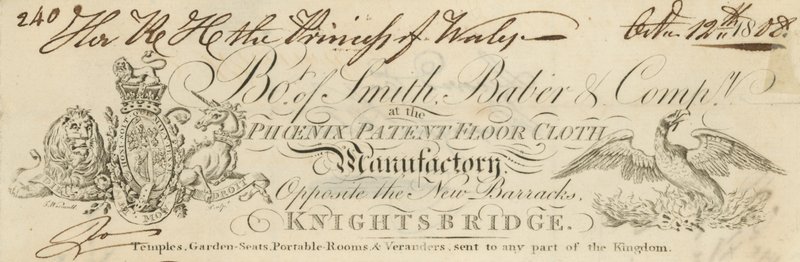 240 Her R H the Princess of Wales Octr 12th 1808.
Bot. of Smith, Baber & Compy.
at the
PHŒNIX PATENT FLOOR CLOTH
Manufactory,
Opposite the New Barracks,
KNIGHTSBRIDGE.
Temples, Garden-Seats, Portable-Rooms, & Veranders, sent to any part of the Kingdom.
HONI SOIT QUI MAL Y PENSE
DROIT